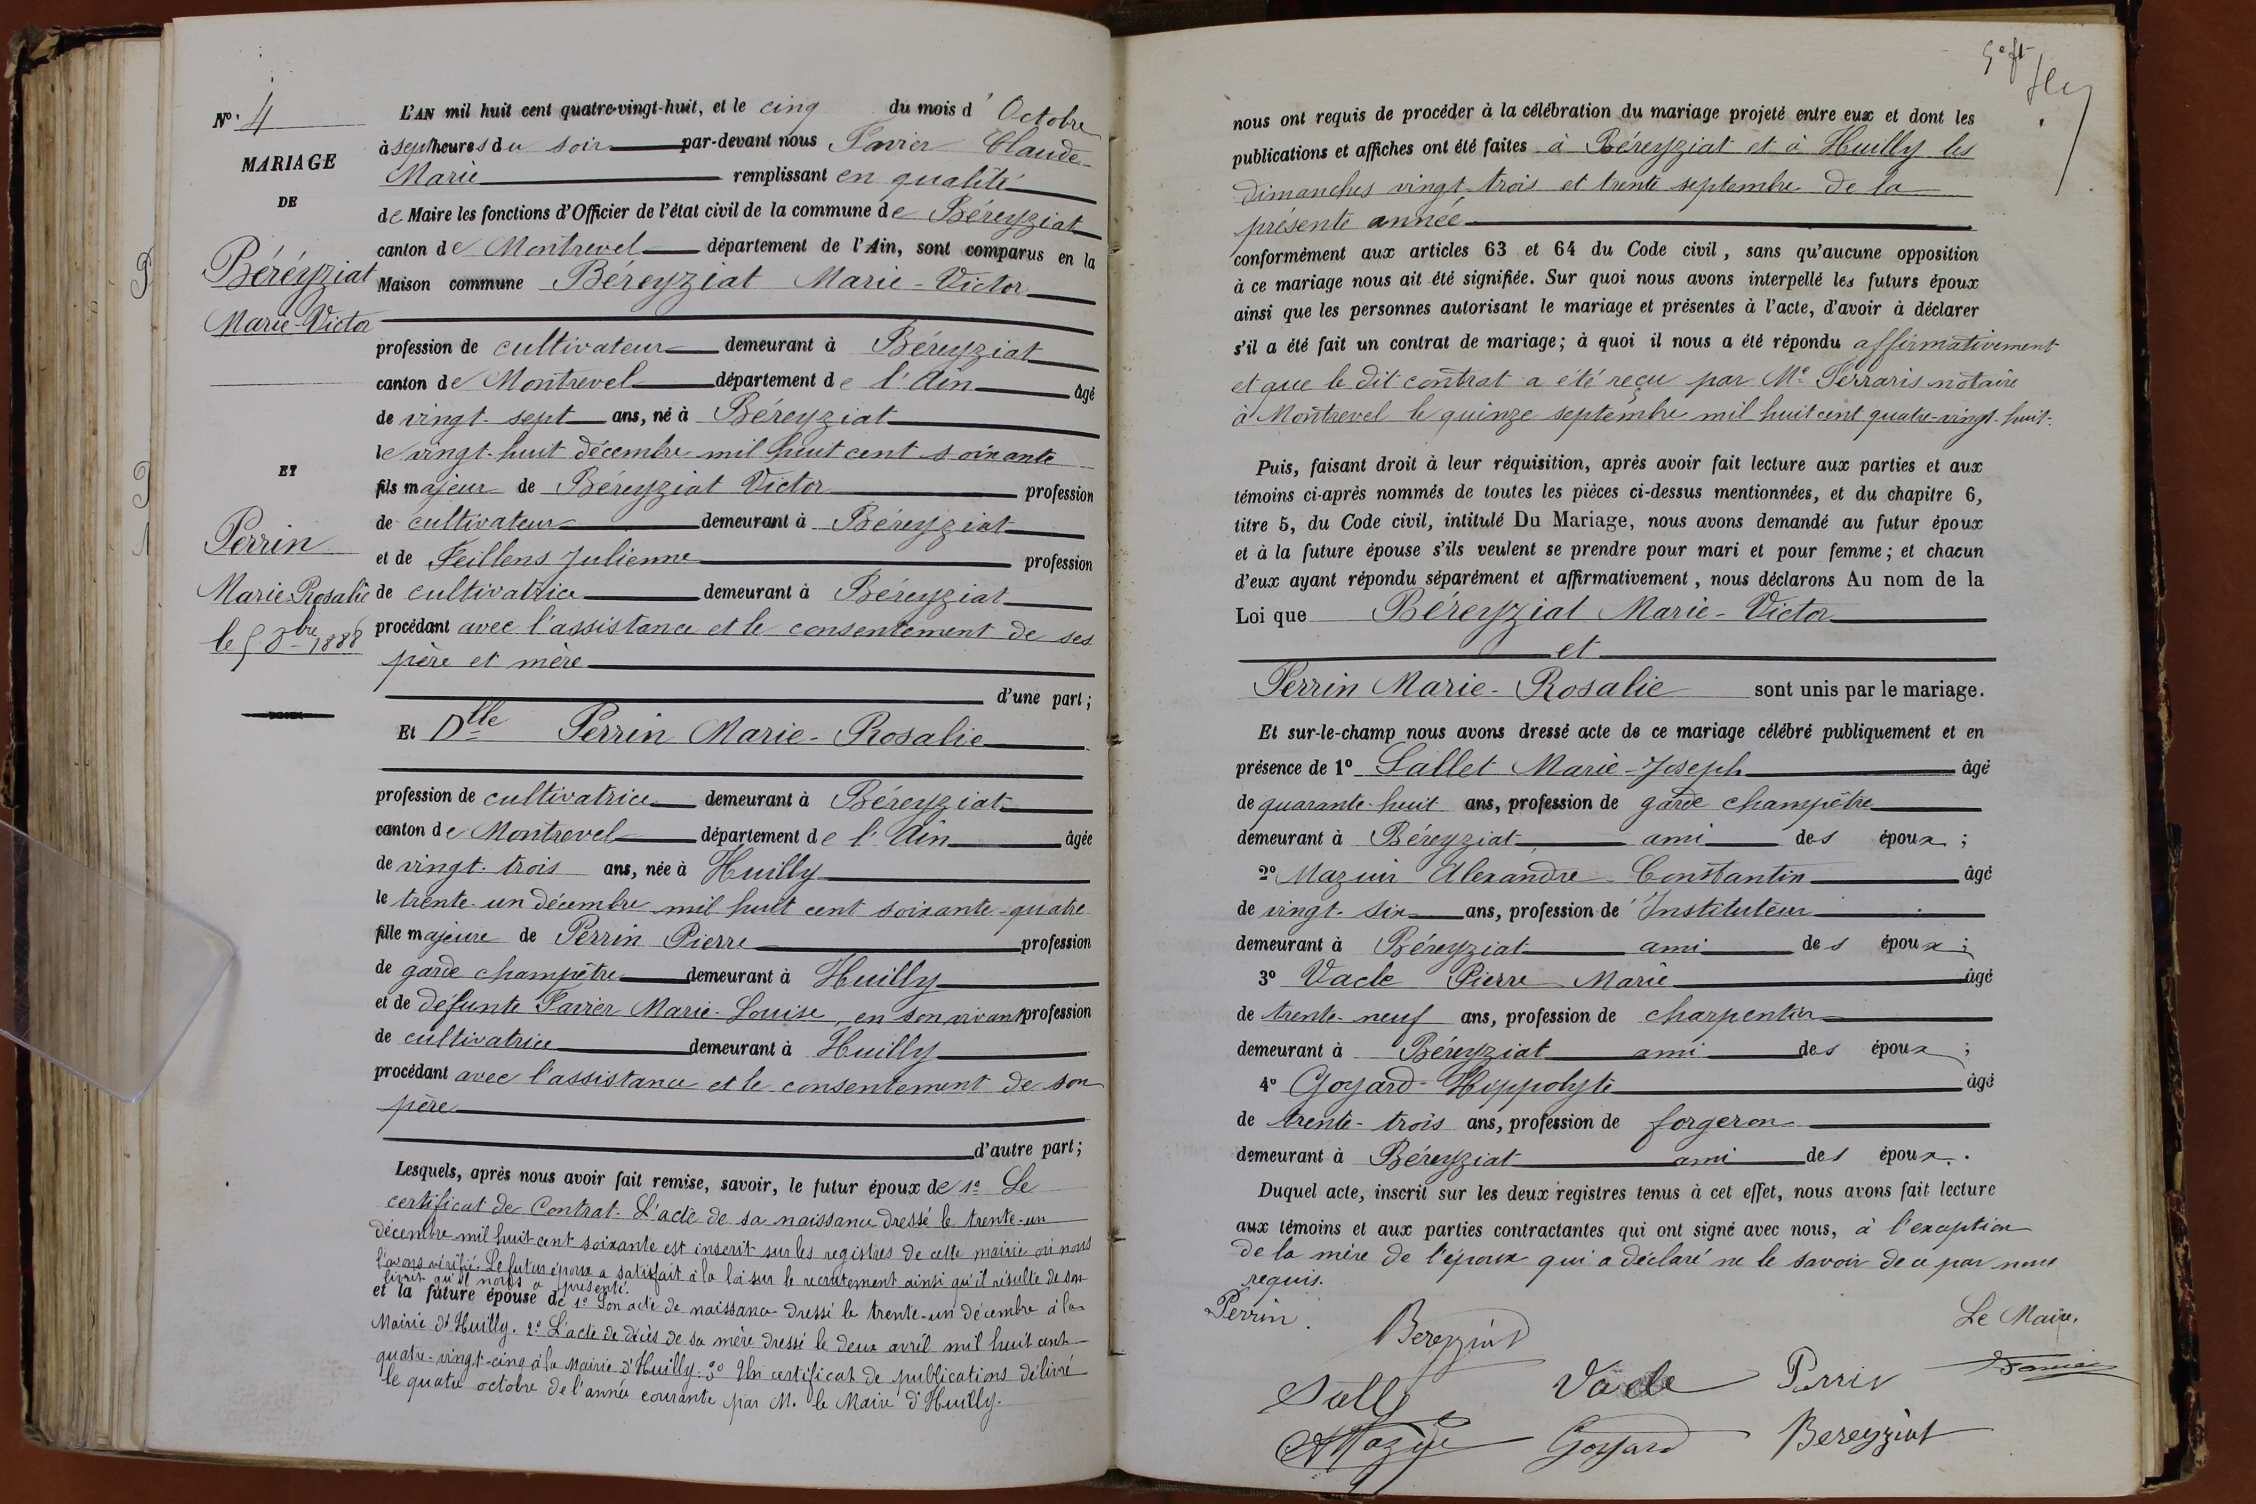 N° 4
MARIAGE
DE
Béréyziat
Marie-Victor
ET
Perrin
Marie-Rosalie
le 5 8bre 1888
L'AN mil huit cent quatre-vingt-huit, et le cinq du mois d'Octobre
à sept heures du soir par-devant nous Favier Claude
Marie remplissant en qualité
de Maire les fonctions d'Officier de l'état civil de la commune de Béreyziat
canton de Montrevel département de l'Ain, sont comparus en la
Maison commune Béreyziat Marie-Victor
profession de cultivateur demeurant à Béreyziat
canton de Montrevel département de l'Ain âgé
de vingt-sept ans, né à Béreyziat
le vingt-huit décembre mil huit cent soixante
fils majeur de Béreyziat Victor profession
de cultivateur demeurant à Béreyziat
et de Feillens Julienne profession
de cultivatrice demeurant à Béreyziat
procédant avec l'assistance et le consentement de ses
père et mère
d'une part;
Et Dlle Perrin Marie-Rosalie
profession de cultivatrice demeurant à Béreyziat
canton de Montrevel département de l'Ain âgée
de vingt-trois ans, née à Huilly
le trente-un décembre mil huit cent soixante-quatre
fille majeure de Perrin Pierre profession
de garde champêtre demeurant à Huilly
et de défunte Favier Marie-Louise, en son vivant profession
de cultivatrice demeurant à Huilly
procédant avec l'assistance et le consentement de son
père
d'autre part;
Lesquels, après nous avoir fait remise, savoir, le futur époux de 1° Le
certificat de Contrat. L'acte de sa naissance dressé le trente-un
décembre mil huit cent soixante est inscrit sur les registres de cette mairie où nous
l'avons vérifié. Le futur époux a satisfait à la loi sur le recrutement ainsi qu'il résulte de son
livret qu'il nous a présenté.
et la future épouse de 1° Son acte de naissance dressé le trente-un décembre à la
Mairie d'Huilly. 2° L'acte de décès de sa mère dressé le deux avril mil huit cent
quatre-vingt-cinq à la Mairie d'Huilly. 3° Un certificat de publications délivré
le quatre octobre de l'année courante par M. le Maire d'Huilly.
5e ft
nous ont requis de procéder à la célébration du mariage projeté entre eux et dont les
publications et affiches ont été faites à Béreyziat et à Huilly les
dimanches vingt-trois et trente septembre de la
présente année
conformément aux articles 63 et 64 du Code civil, sans qu'aucune opposition
à ce mariage nous ait été signifiée. Sur quoi nous avons interpellé les futurs époux
ainsi que les personnes autorisant le mariage et présentes à l'acte, d'avoir à déclarer
s'il a été fait un contrat de mariage; à quoi il nous a été répondu affirmativement
et que le dit contrat a été reçu par Me Ferraris notaire
à Montrevel le quinze septembre mil huit cent quatre-vingt-huit.
Puis, faisant droit à leur réquisition, après avoir fait lecture aux parties et aux
témoins ci-après nommés de toutes les pièces ci-dessus mentionnées, et du chapitre 6,
titre 5, du Code civil, intitulé Du Mariage, nous avons demandé au futur époux
et à la future épouse s'ils veulent se prendre pour mari et pour femme; et chacun
d'eux ayant répondu séparément et affirmativement, nous déclarons Au nom de la
Loi que Béreyziat Marie-Victor
et
Perrin Marie-Rosalie sont unis par le mariage.
Et sur-le-champ nous avons dressé acte de ce mariage célébré publiquement et en
présence de 1° Sallet Marie-Joseph âgé
de quarante-huit ans, profession de garde champêtre
demeurant à Béreyziat ami des époux;
2° Mazuir Alexandre Constantin âgé
de vingt-six ans, profession de Instituteur
demeurant à Béreyziat ami des époux;
3° Vacle Pierre Marie âgé
de trente-neuf ans, profession de charpentier
demeurant à Béreyziat ami des époux;
4° Goyard Hippolyte âgé
de trente-trois ans, profession de forgeron
demeurant à Béreyziat ami des époux.
Duquel acte, inscrit sur les deux registres tenus à cet effet, nous avons fait lecture
aux témoins et aux parties contractantes qui ont signé avec nous, à l'exception
de la mère de l'époux qui a déclaré ne le savoir de ce par nous
requis.
Perrin.
Bereyziat
Le Maire,
Favier
Vacle
Perrin
Goyard
Bereyziat